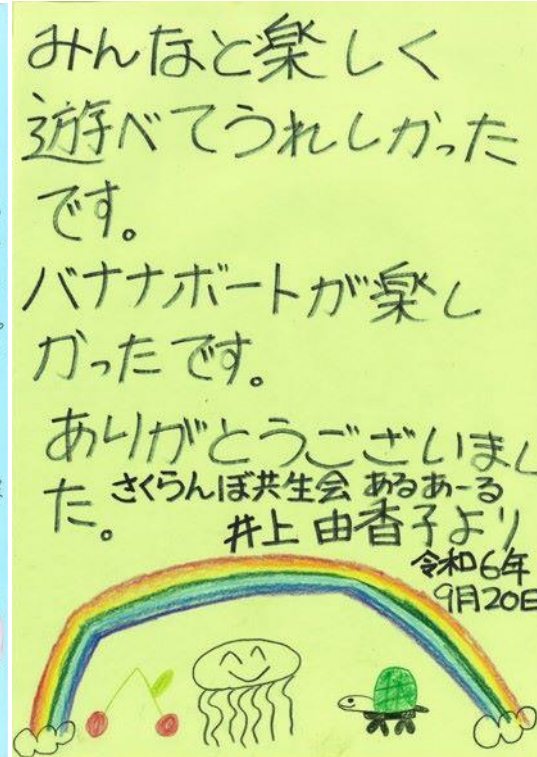 みんなと楽しく
遊べてうれしかった
です。
バナナボートが楽し
かったです。
ありがとうございまし
た。
さくらんぼ共生会 あるあーる
井上 由香子より
令和6年
9月20日